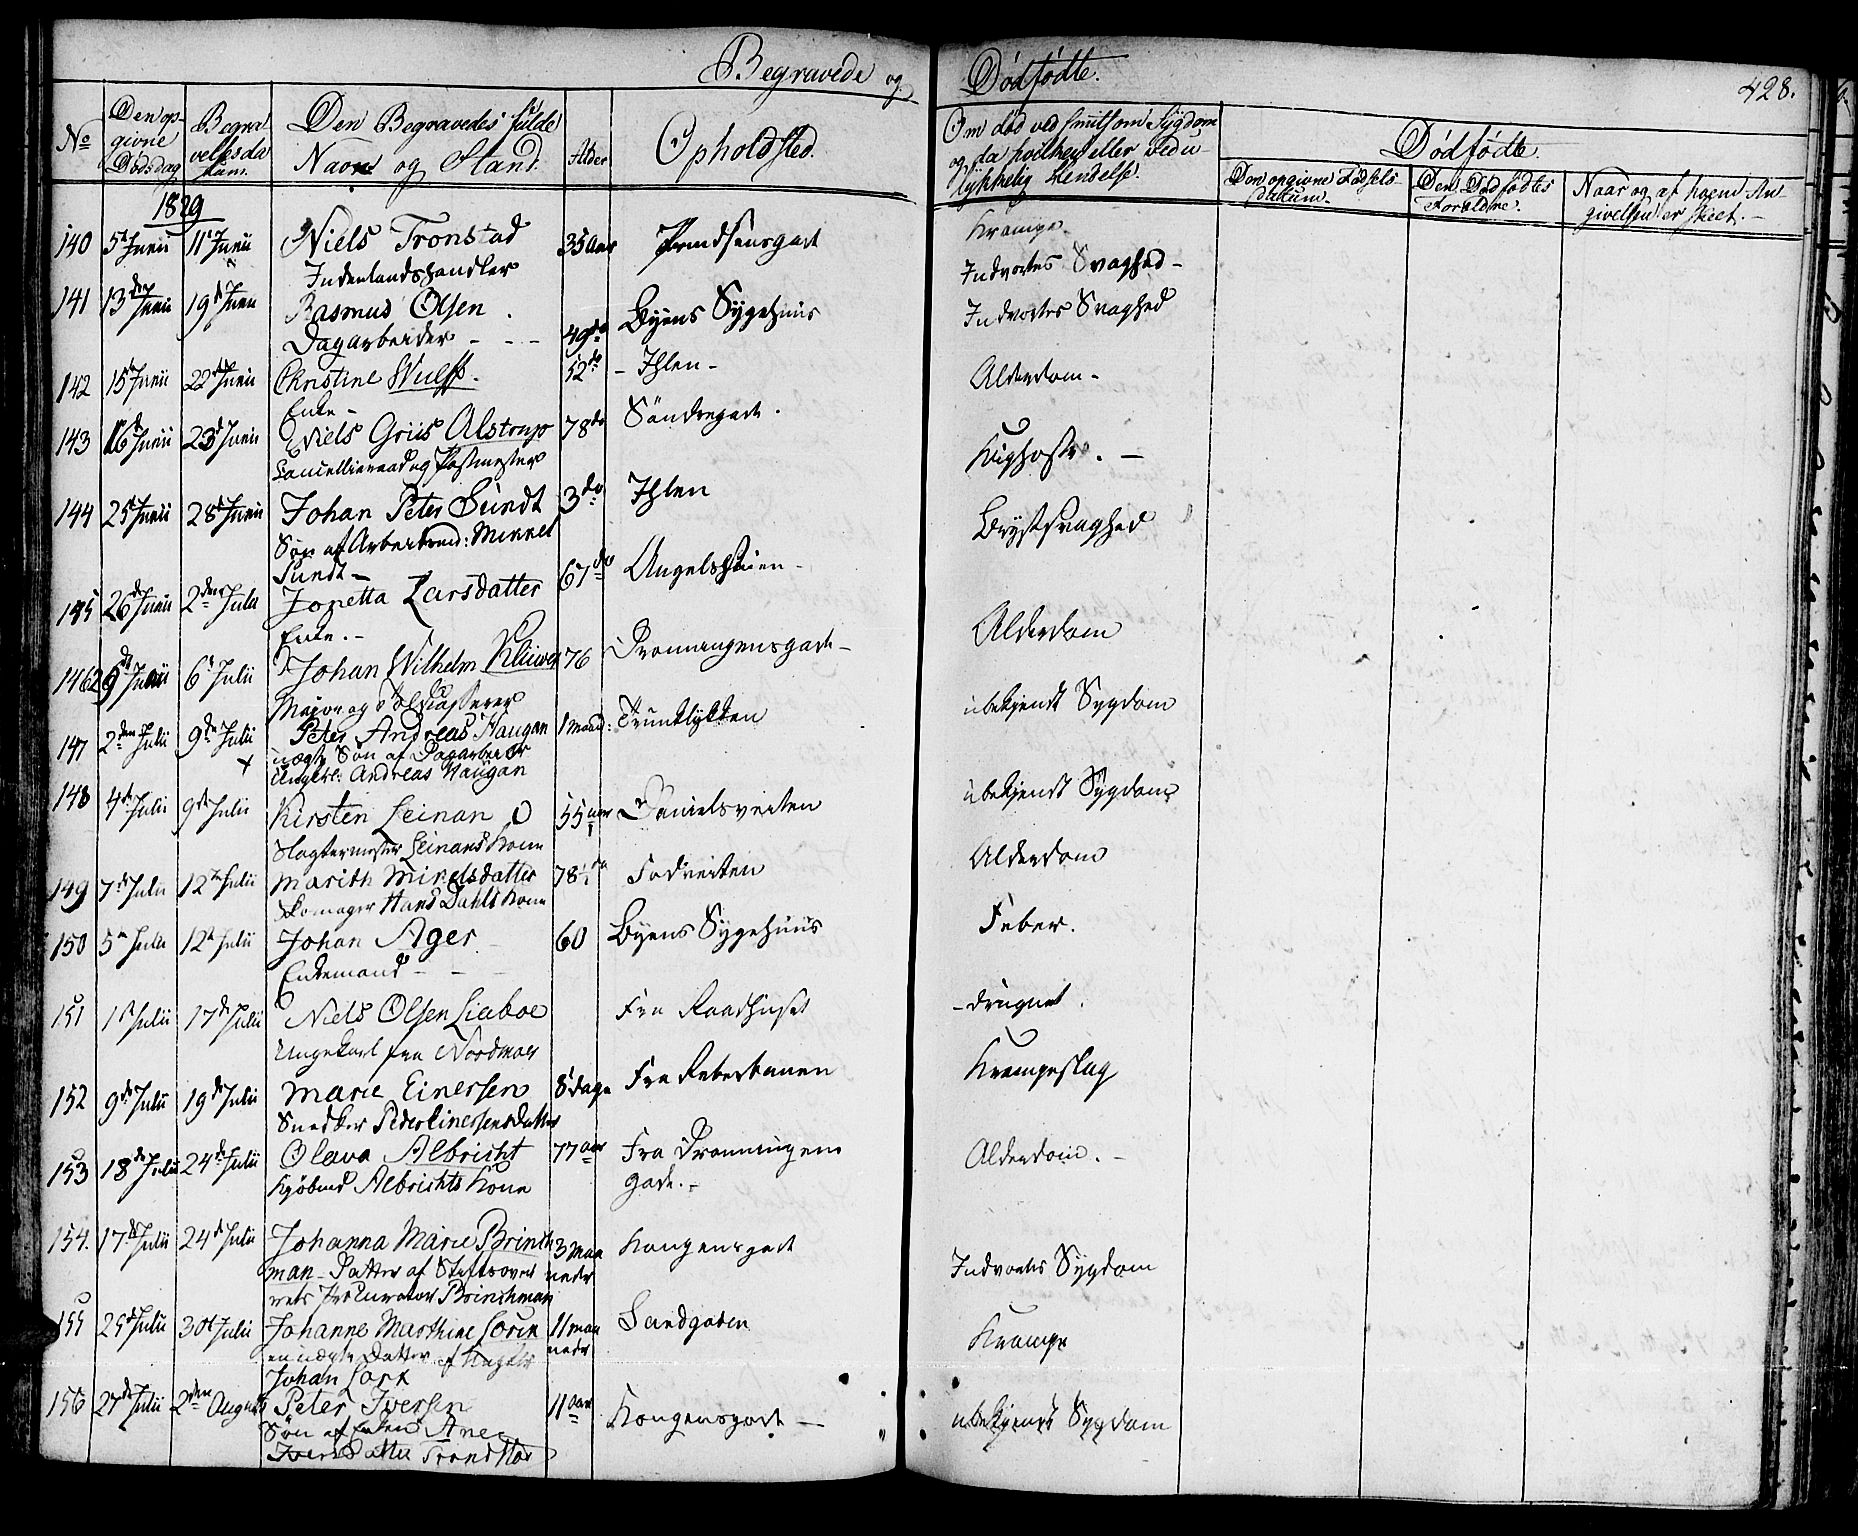 Begravede og Dødfødte.
428.
No
Den opgivne Dødsdag
Begravelsesdatum.
Den Begravedes fulde Navn og Stand.
Alder
Opholdsted.
Om død ved smitsom Sygdom og da hvilken eller ved ulykkelig Hendelse.
Dødfødte.
Den opgivne Fødselsdatum.
Den Dødfødtes Forældre.
Naar og af hvem Angivelsen er skeet.
1829
140 5t Junii 11t Junii Niels Tronstad 35 Aar Prindsensgade Krampe.
Indenlandshandler Indvortes Svaghed -
141 13de Junii 19d Junii Rasmus Olsen
Dagarbeider - - - 49 do Byens Sygehuus Indvortes Svaghed
142 15d Junii 22d Junii Christine Wulff. 52 do - Ihlen - Alderdom -
Enke -
143 16d Junii 23d Junii Niels Griis Alstrup 78 do Söndregade.
Cancelliraad og Postmester Kighoste. -
144 25d Junii 28d Junii Johan Peter Sundt 3 do Ihlen Brystsvaghed
Søn af Arbeidsmd: Mikkel
Sundt -
145 26d Junii 2den Julii Jonetta Larsdatter 67 do Alderdom
Enke. -
146 29d Junii 6t Julii Johan Wilhelm Klüwer 76 Dronningensgade -
Major og ubekjendt Sygdom
147 2den Julii 9de Julii Peter Andreas Haugan 1 Maaned:
uægte Søn af Dagarbeider
Ungkl: Andreas Haugan ubekjendt Sygdom
148 4de Julii 9de Julii Kirsten Leinan 55 aar Danielsveiten
Slagtermester Leinans Kone Alderdom
149 7de Julii 12te Julii Marith Mikelsdatter 78½ do
Skomager Hans Dahls Kone Feber.
150 5te Julii 12te Julii Johan Ager 60 Byens Sygehuus
Enkemand - - -
151 1st Julii 17de Julii Niels Olsen Liaboe Fra Raadhuset druknet.
Ungekarl fra Nordmør
152 9de Julii 19de Julii Marie Einersen 8 dage Fra Reberbanen Krampeslag
Snedker Peder Einersens Datter
153 18de Julii 24de Julii Olava Albricht 77 aar Fra Dronningens Alderdom. -
Kjøbmd Albrichts Kone gade. -
154. 17de Julii 24de Julii Johanna Marie Brinch 3 Maa Kongensgade
man - Datter af Stiftsover neder Indvortes Sygdom
rets Procurator Brinchman
155 25d Julii 30t Julii Johanne Marthine Lorck 11 maa Sandgaden Krampe
en uægte Datter af Ungkl neder
Johan Lorck
156 27de Julii 2den August Peter Iversen 11 aar Kongensgade - ubekjendt Sygdom
Søn af Enken Ane
Iversdatter Trondstad